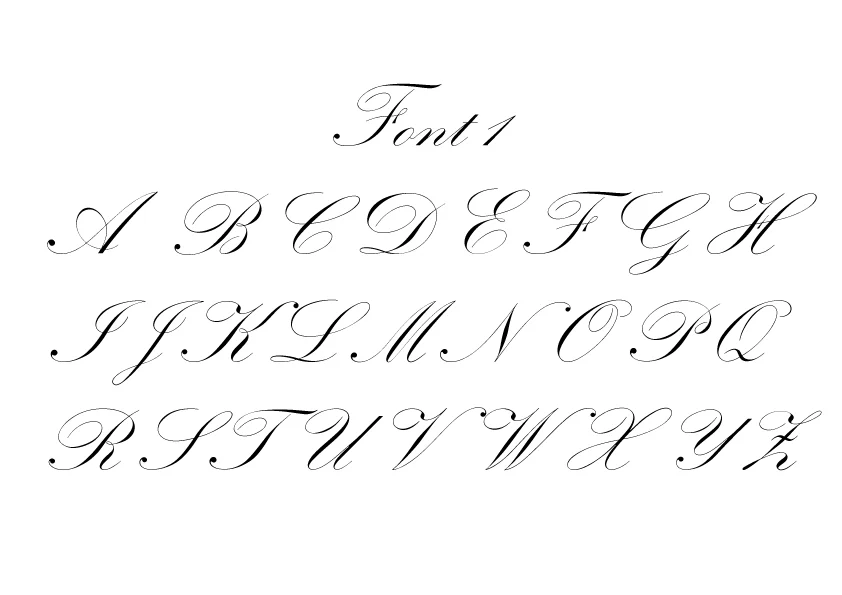 Font 1
A B C D E F G H
I J K L M N O P Q
R S T U V W X Y Z